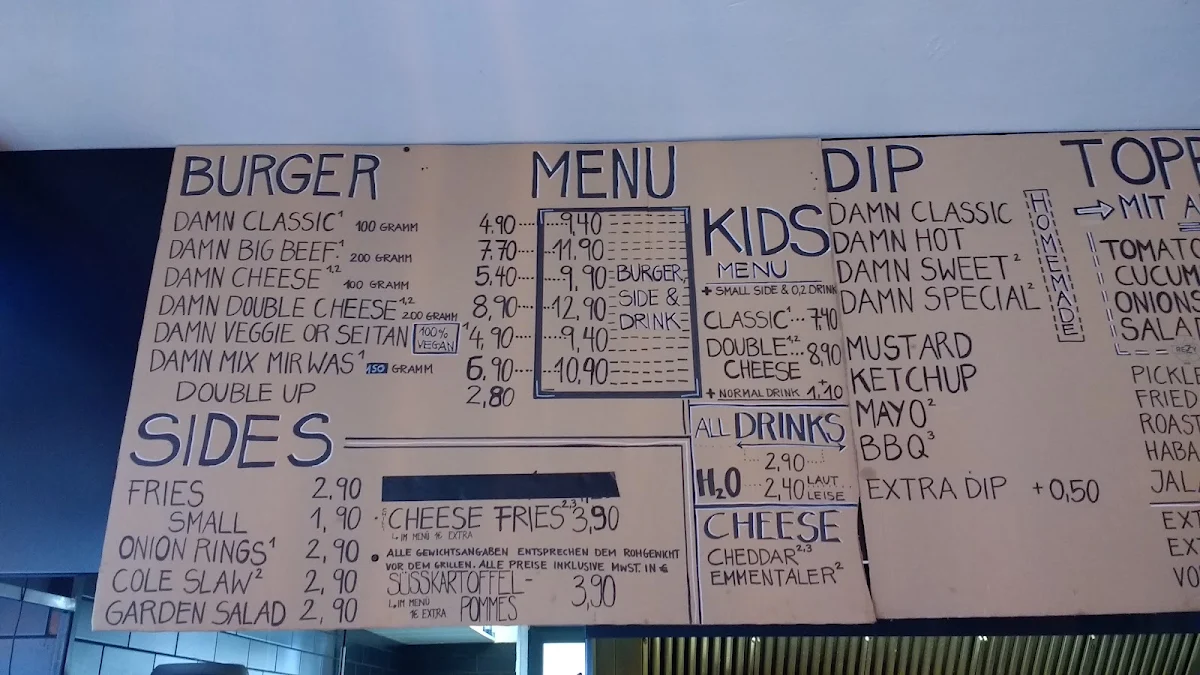 BURGER MENU
DAMN CLASSIC¹ 100 GRAMM 4.90 9,40
DAMN BIG BEEF¹ 200 GRAMM 7.70 11.90
DAMN CHEESE ¹,² 100 GRAMM 5.40 9,90
DAMN DOUBLE CHEESE ¹,² 200 GRAMM 8,90 12,90
DAMN VEGGIE OR SEITAN 100% VEGAN ¹ 4,90 9,40
DAMN MIX MIR WAS ¹ 150 GRAMM 6,90 10,90
DOUBLE UP 2,80
BURGER,
SIDE &
DRINK
SIDES
FRIES 2,90
SMALL 1,90
ONION RINGS¹ 2,90
COLE SLAW² 2,90
GARDEN SALAD 2,90
CHEESE FRIES ²,³ 3,90
↳ IM MENÜ 1€ EXTRA
ALLE GEWICHTSANGABEN ENTSPRECHEN DEM ROHGEWICHT
VOR DEM GRILLEN. ALLE PREISE INKLUSIVE MWST. IN €
SÜSSKARTOFFEL-
POMMES 3,90
↳ IM MENÜ
1€ EXTRA
KIDS
MENU
+ SMALL SIDE & 0,2 DRINK
CLASSIC¹ 7,40
DOUBLE ¹,²
CHEESE 8,90
+ NORMAL DRINK + 1,10
ALL DRINKS
2,90
H₂O 2,40 LAUT
LEISE
CHEESE
CHEDDAR ²,³
EMMENTALER²
DIP
DAMN CLASSIC
DAMN HOT
DAMN SWEET²
DAMN SPECIAL²
HOMEMADE
MUSTARD
KETCHUP
MAYO²
BBQ³
EXTRA DIP +0,50
TOPP
⇒ MIT A
TOMATO
CUCUM
ONIONS
SALAT
PICKLE
FRIED
ROAST
HABA
JALA
EXT
EX
VO